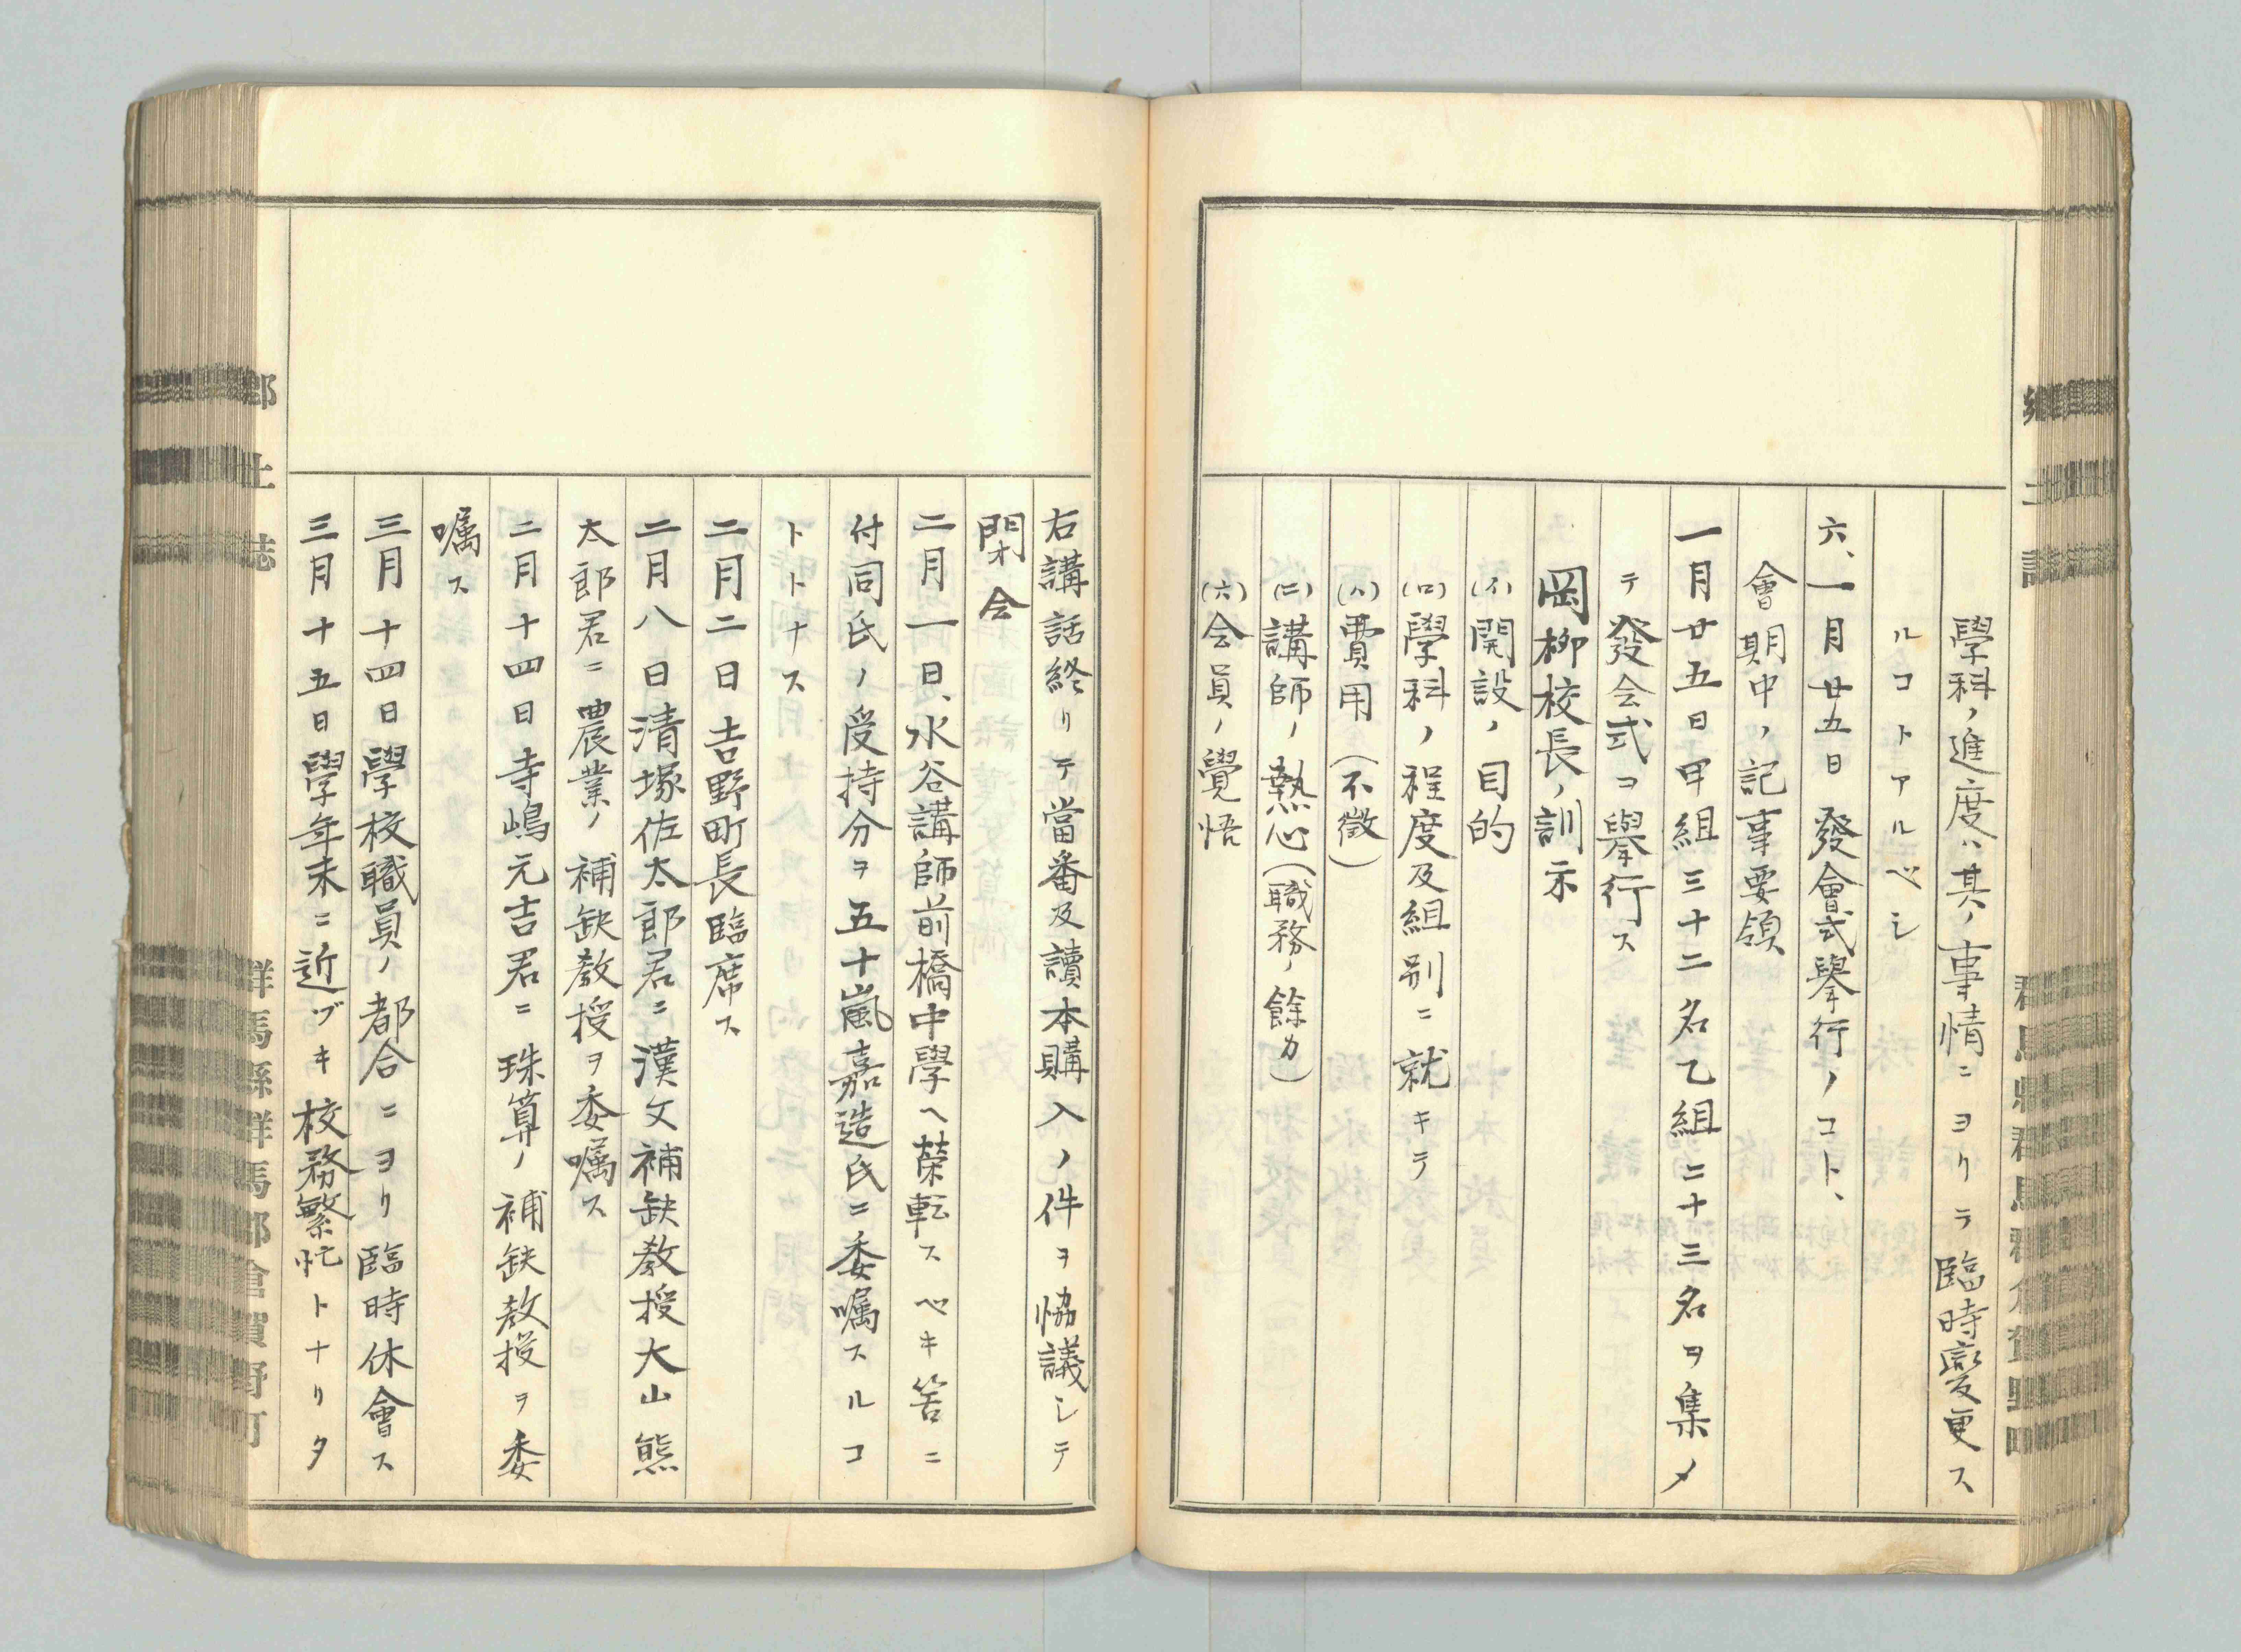 學科ノ進度ハ其ノ事情ニヨリテ臨時變更ス
ルコトアルベシ
六、一月廿五日 發會式擧行ノコト、
會期中ノ記事要領
一月廿五日甲組三十二名乙組二十三名ヲ集メ
テ發会式ヲ擧行ス
岡柳校長ノ訓示
(イ)開設ノ目的
(ロ)學科ノ程度及組別ニ就キテ
(ハ)費用(不徵)
(ニ)講師ノ熱心(職務ノ餘力)
(六)会員ノ覺悟
右講話終リテ當番及讀本購入ノ件ヲ恊議シテ
閉会
二月一日、水谷講師前橋中學ヘ榮転スベキ筈ニ
付同氏ノ受持分ヲ五十嵐嘉造氏ニ委嘱スルコ
トトナス
二月二日 吉野町長臨席ス
二月八日清塚佐太郎君ニ漢文補缺敎授大山熊
太郎君ニ農業ノ補缺敎授ヲ委嘱ス
二月十四日寺嶋元吉君ニ珠算ノ補缺敎授ヲ委
嘱ス
三月十四日學校職員ノ都合ニヨリ臨時休會ス
三月十五日學年末ニ近ヅキ校務繁忙トナリタ
郷土誌
群馬縣群馬郡倉賀野町